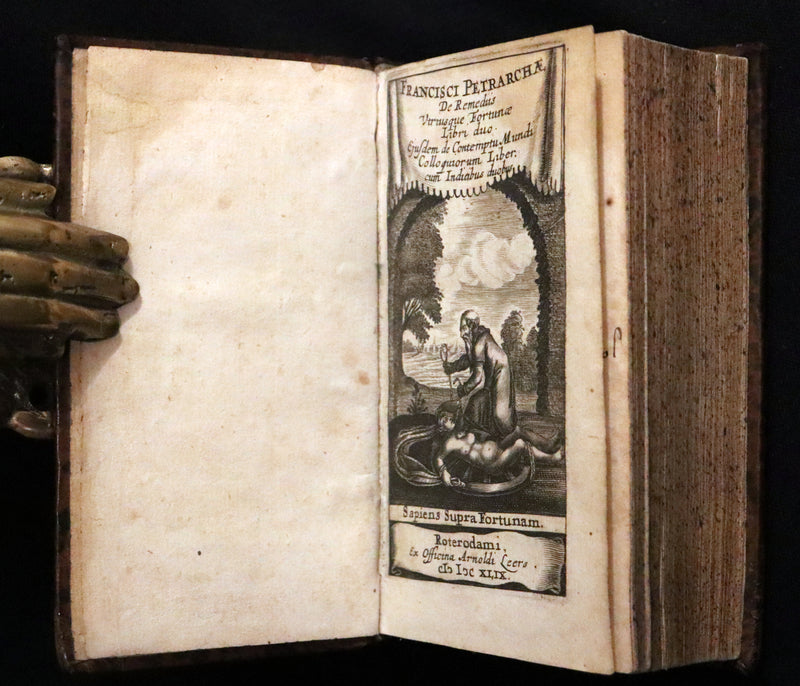 FRANCISCI PETRARCHÆ
De Remediis
Vtriusque Fortunæ
Libri duo.
Ejusdem de Contemptu Mundi
Colloquiorum Liber.
cum Indicibus duobus
Sapiens Supra Fortunam.
Roterodami,
Ex Officina Arnoldi Leers
cIɔ Iɔc XLIX.